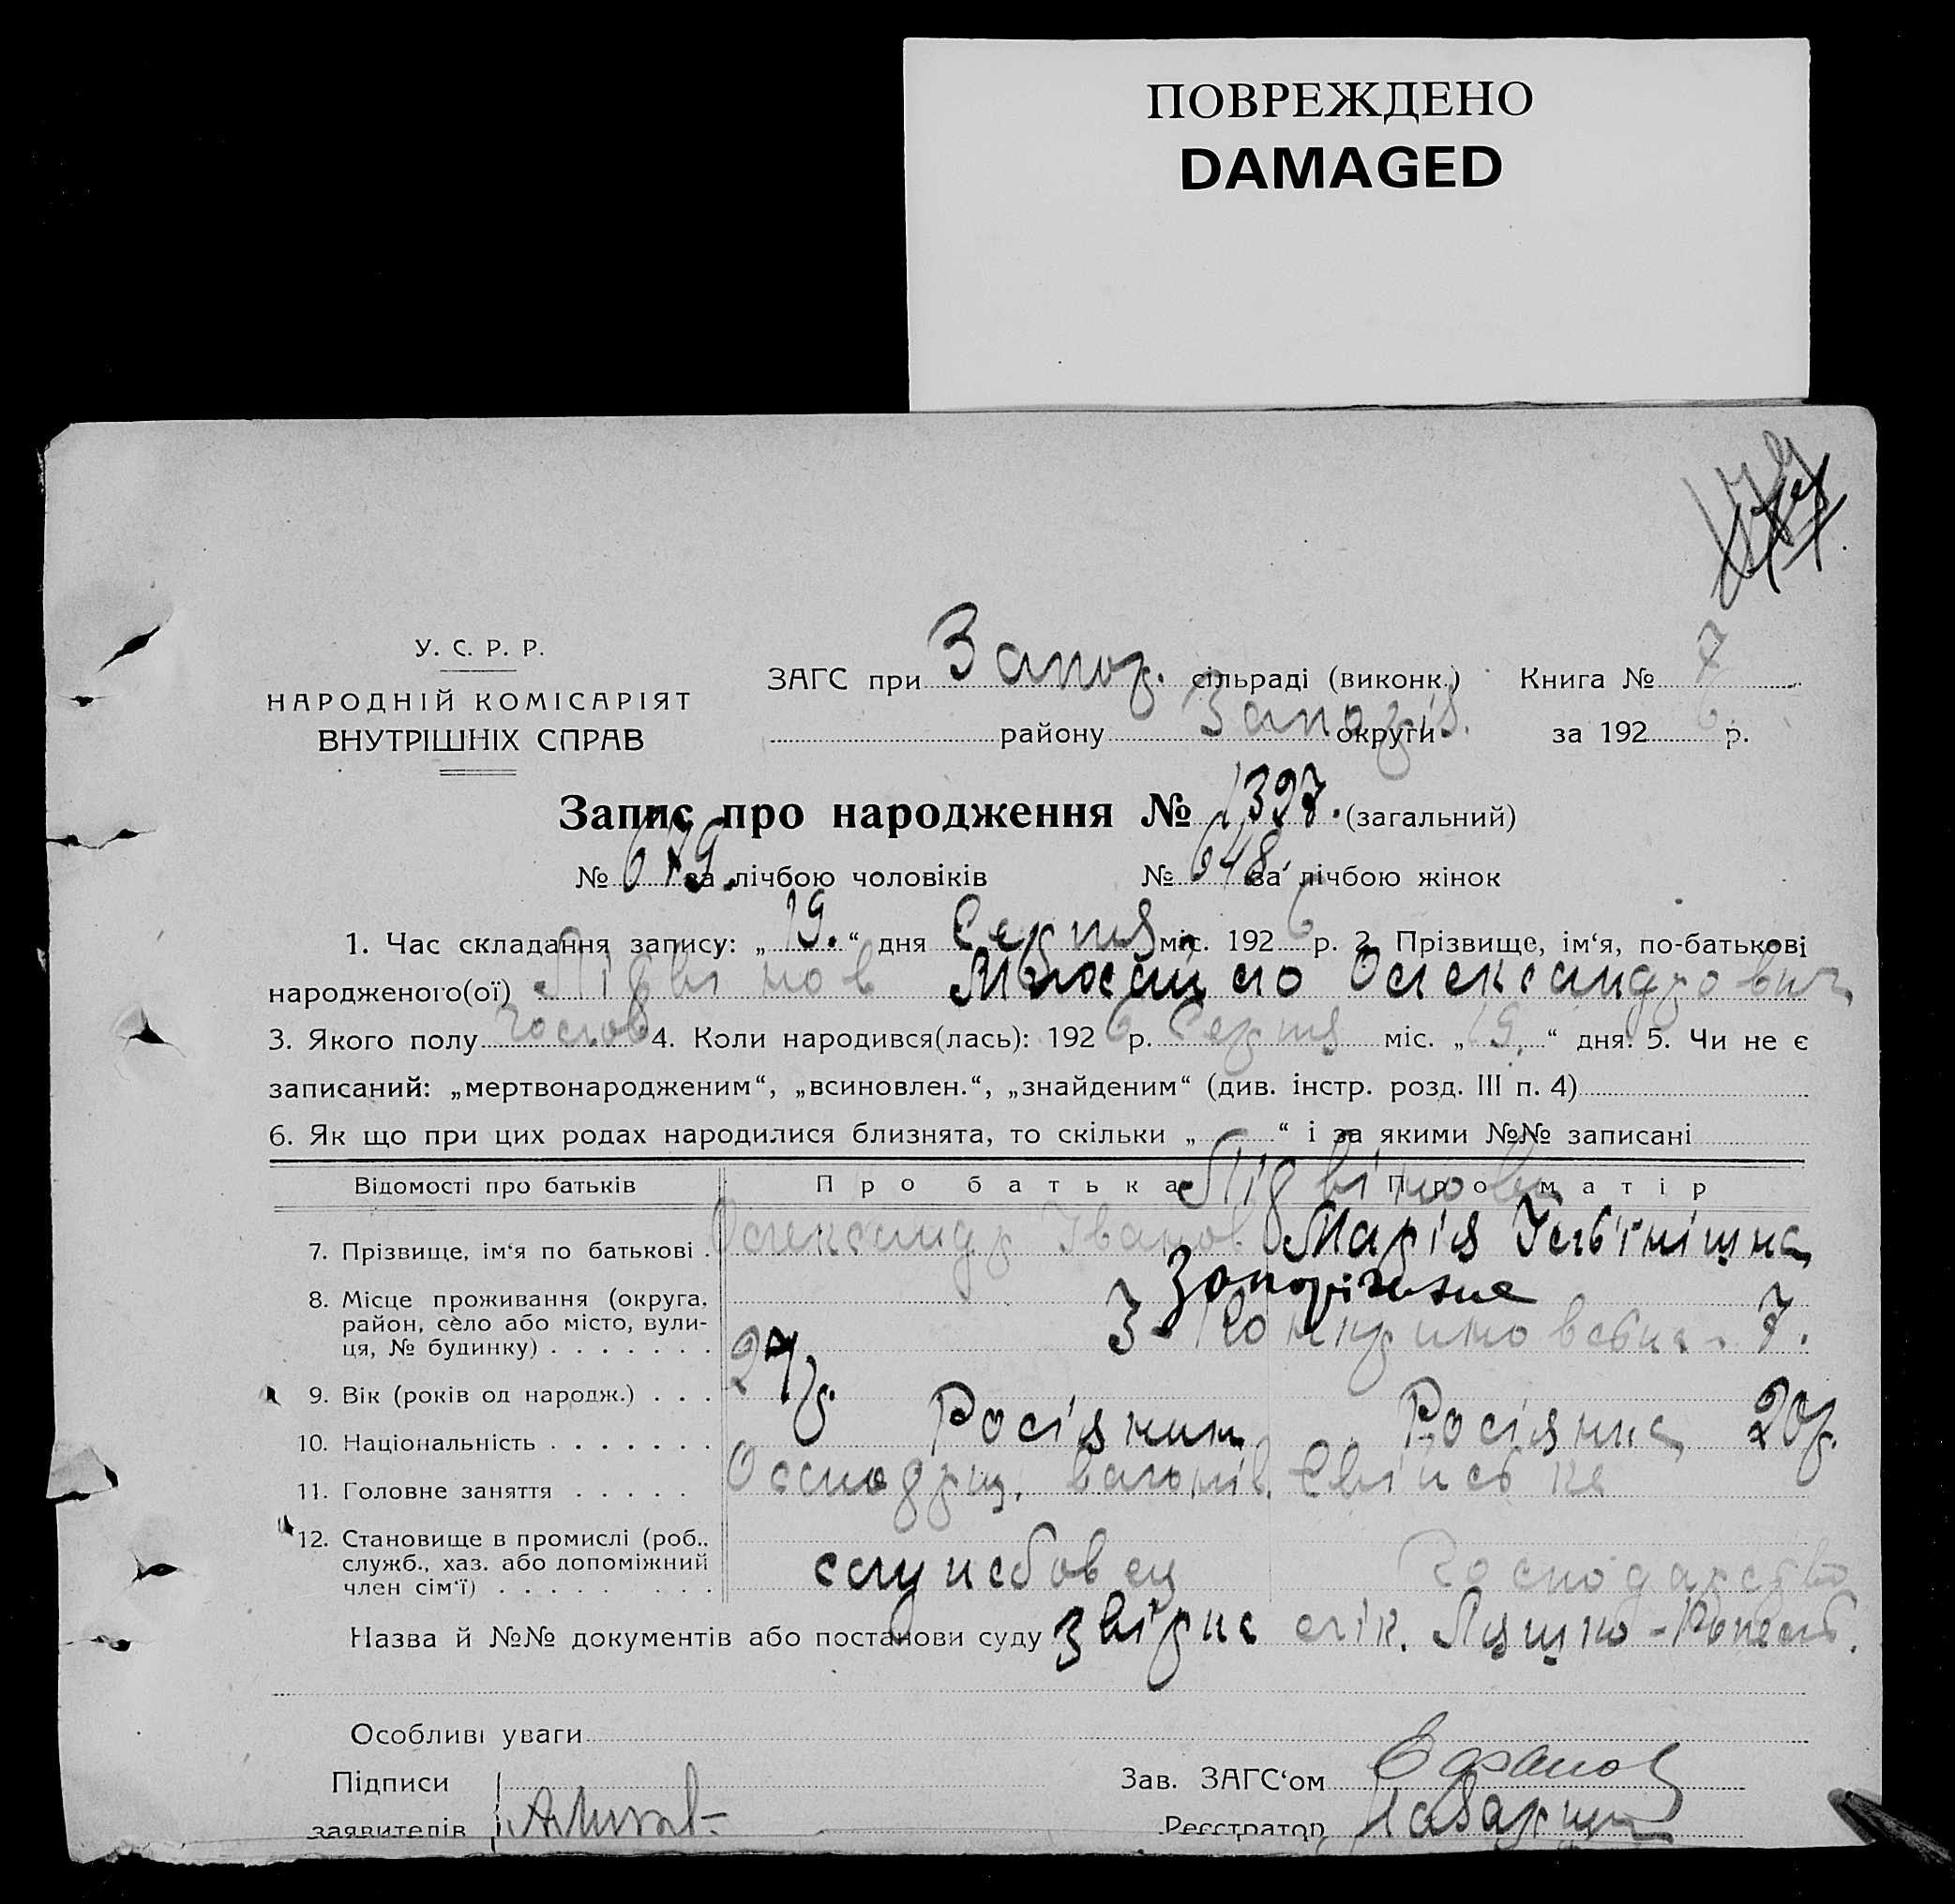 ПОВРЕЖДЕНО
DAMAGED
У. С. Р. Р.
НАРОДНІЙ КОМІСАРІЯТ
ВНУТРІШНІХ СПРАВ
ЗАГС при Запор. сільраді (виконк.) Книга № 7
району Запоріз. округи за 1926 р.
Запис про народження № 1397. (загальний)
№ 679. за лічбою чоловіків № 648 за лічбою жінок
1. Час складання запису: „19.“ дня Серпня міс. 1926 р. 2. Прізвище, ім‘я, по-батькові
народженого(ої) Михайло Олександрович
3. Якого полу чолов 4. Коли народився(лась): 1926 р. Серпня міс. „19.“ дня. 5. Чи не є
записаний: „мертвонародженим“, „всиновлен.“, „знайденим“ (див. інстр. розд. III п. 4)
6. Як що при цих родах народилися близнята, то скільки „ “ і за якими №№ записані
Відомості про батьків Про батька Про матір
7. Прізвище, ім‘я по батькові . Олександр Іванов Марія
8. Місце проживання (округа, район, село або місто, вулиця, № будинку) . . . . . . . Запоріжжя 7.
9. Вік (років од народж.) . . . 27 р. 20 р.
10. Національність . . . . . . . Росіянин Росіянка
11. Головне заняття . . . . . вагонів.
12. Становище в промислі (роб.. служб., хаз. або допоміжний член сім‘ї) . . . . . . . . . службовець Господарство
Назва й №№ документів або постанови суду звірка лік.
Особливі уваги
Підписи
заявителів
Зав. ЗАГС‘ом
Реєстратор